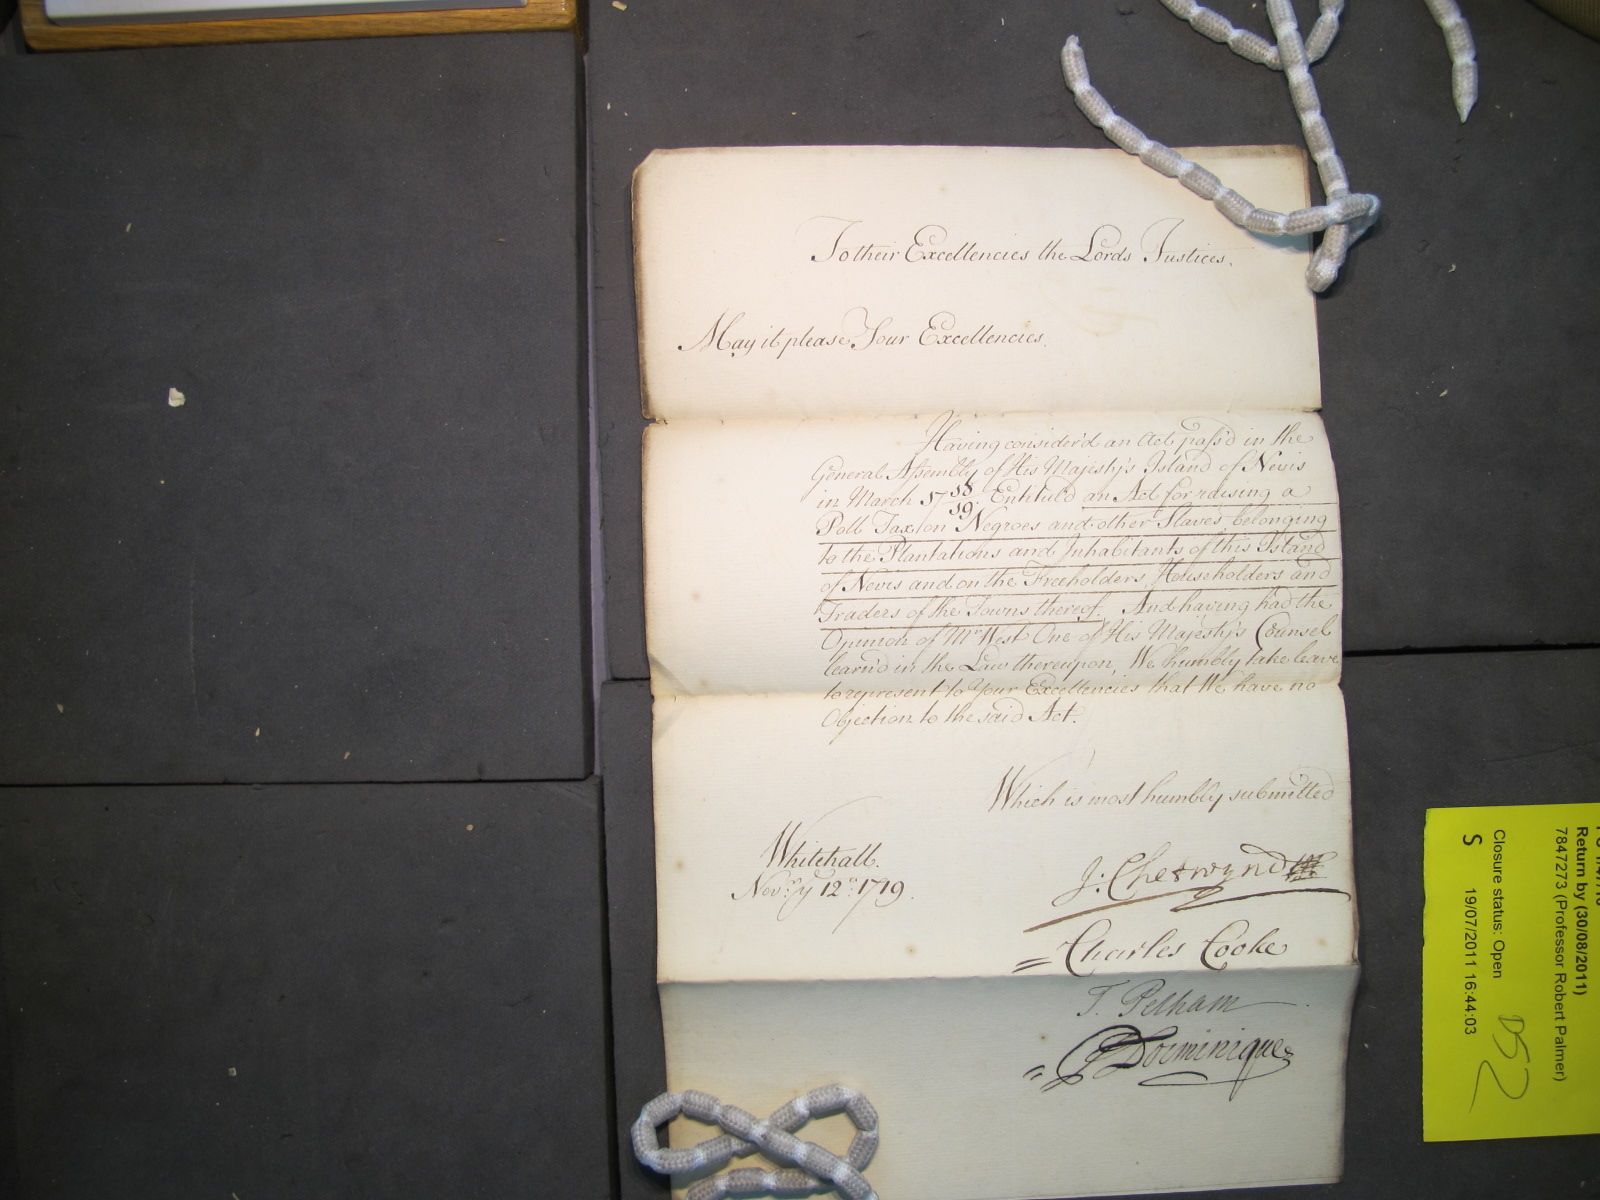 To their Excellencies the Lords Justices.
May it please Your Excellencies.
Having consider'd an Act pass'd in the
General Assembly of His Majesty's Island of Nevis
in March 17 18/19. Entituled an Act for raising a
Poll Tax on Negroes and other Slaves belonging
to the Plantations and Inhabitants of this Island
of Nevis and on the Freeholders, Householders and
Traders of the Towns thereof, And having had the
Opinion of Mr. West One of His Majesty's Counsel
learn'd in the Law thereupon, We humbly take leave
to represent to Your Excellencies that We have no
Objection to the said Act.
Which is most humbly submitted
Whitehall.
Novr. ye 12th. 1719.
J: Chetwynd
Charles Cooke
T. Pelham
P Dominique
Return by (30/08/2011)
7847273 (Professor Robert Palmer)
Closure status: Open
S 19/07/2011 16:44:03
D52